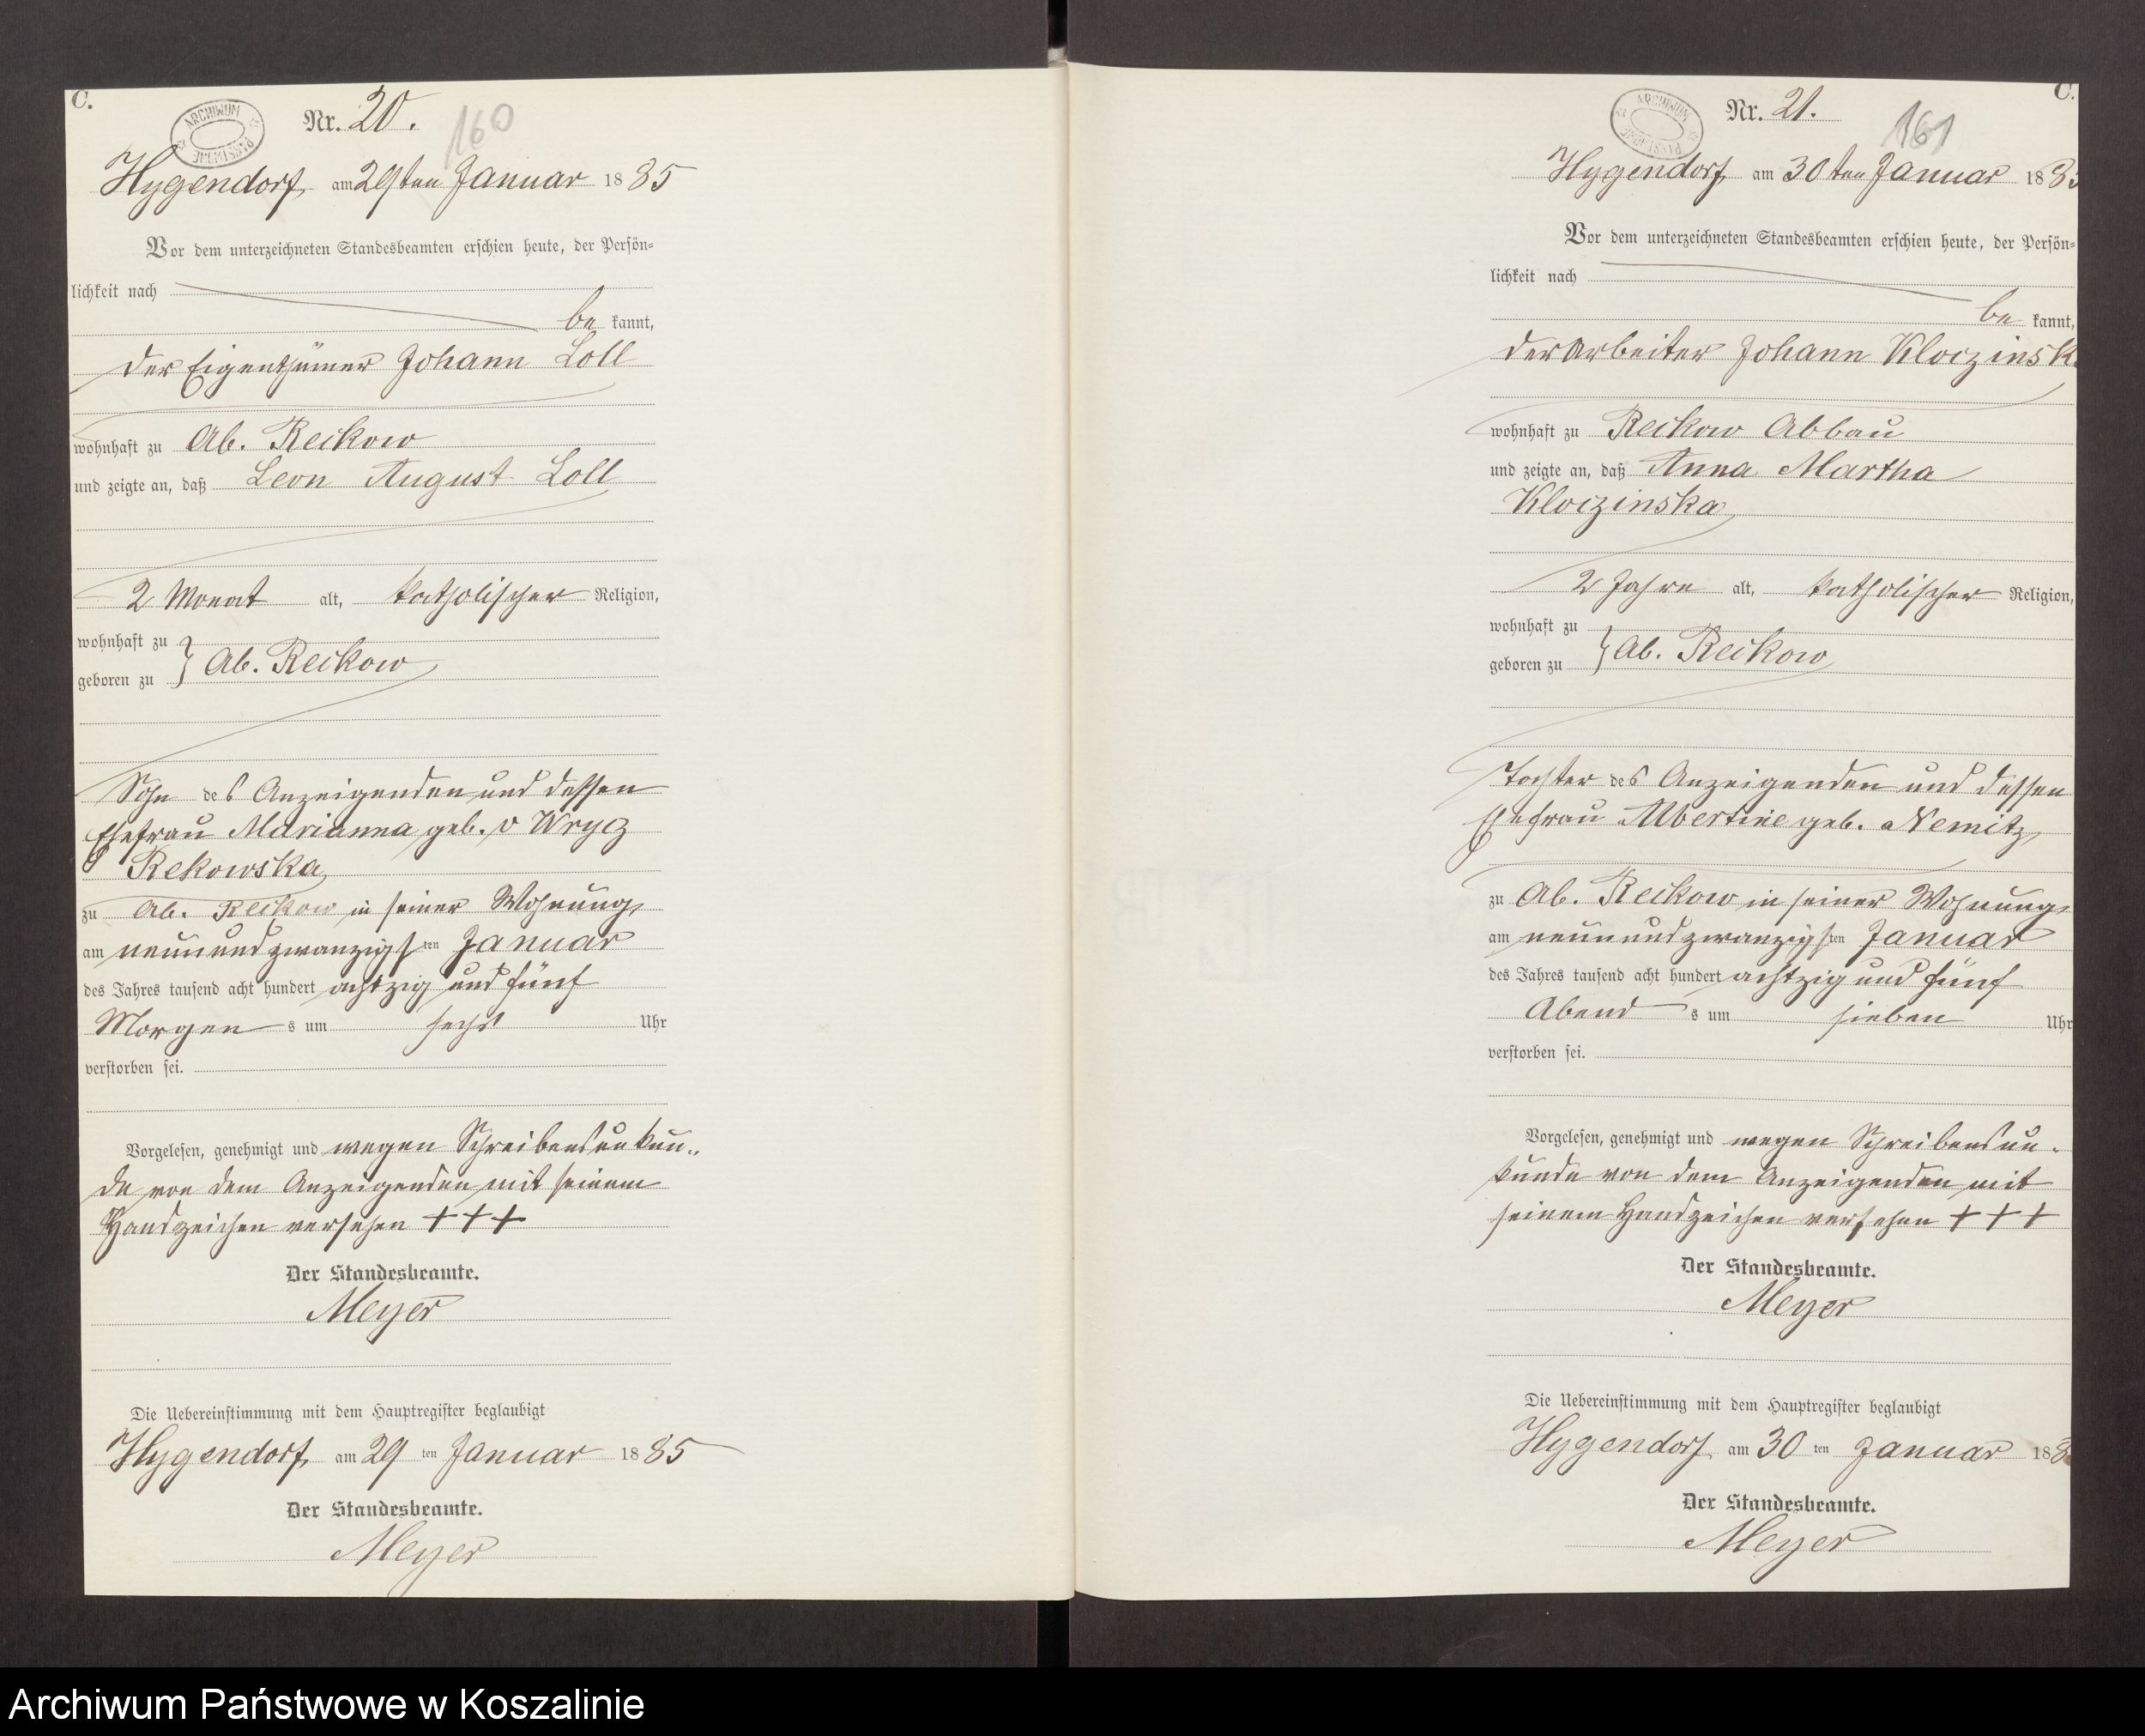 C.
ARCHIWUM PAŃSTWOWE
Nr. 20.
160
Hygendorf, am 29ten Januar 1885
Vor dem unterzeichneten Standesbeamten erschien heute, der Persön=
lichkeit nach
be kannt,
der Eigenthümer Johann Loll
wohnhaft zu Ab. Reckow
und zeigte an, daß Leon August Loll
2 Monat alt, katholischer Religion,
wohnhaft zu
geboren zu } Ab. Reckow
Sohn des Anzeigenden und dessen
Ehefrau Marianna geb. v Wrycz
Rekowska,
zu Ab. Reckow in seiner Wohnung,
am neunundzwanzigsten Januar
des Jahres tausend acht hundert achtzig und fünf
Morgens um sechs Uhr
verstorben sei.
Vorgelesen, genehmigt und wegen Schreibensunkun..
de von dem Anzeigenden mit seinem
Handzeichen versehen +++
Der Standesbeamte.
Meyer
Die Uebereinstimmung mit dem Hauptregister beglaubigt
Hygendorf, am 29 ten Januar 1885
Der Standesbeamte.
Meyer
C.
ARCHIWUM PAŃSTWOWE
Nr. 21.
161
Hygendorf, am 30ten Januar 188
Vor dem unterzeichneten Standesbeamten erschien heute, der Persön=
lichkeit nach
be kannt,
der Arbeiter Johann Kloczinsk
wohnhaft zu Reckow Abbau
und zeigte an, daß Anna Martha
Kloczinska,
2 Jahre alt, katholischer Religion,
wohnhaft zu
geboren zu } Ab. Reckow,
Tochter des Anzeigenden und dessen
Ehefrau Albertine geb. Nemitz,
zu Ab. Reckow in seiner Wohnung,
am neunundzwanzigsten Januar
des Jahres tausend acht hundert achtzig und fünf
Abends um sieben Uhr
verstorben sei.
Vorgelesen, genehmigt und wegen Schreibensun.
kunde von dem Anzeigenden mit
seinem Handzeichen versehen +++
Der Standesbeamte.
Meyer
Die Uebereinstimmung mit dem Hauptregister beglaubigt
Hygendorf, am 30 ten Januar 188
Der Standesbeamte.
Meyer
Archiwum Państwowe w Koszalinie